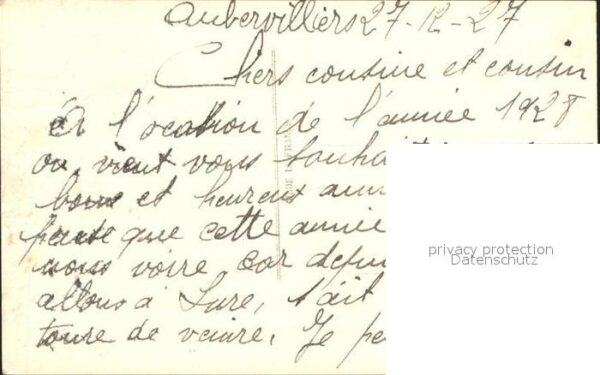 Aubervilliers 27-12-27
Chers cousine et cousin
A l'ocation de l'année 1928
on vient vous souhait
bone et heureux ann
que cette année
vous voire car depui
allons à Lure, s'ait
toure de venire. Je pe
DE FRA
privacy protection
Datenschutz